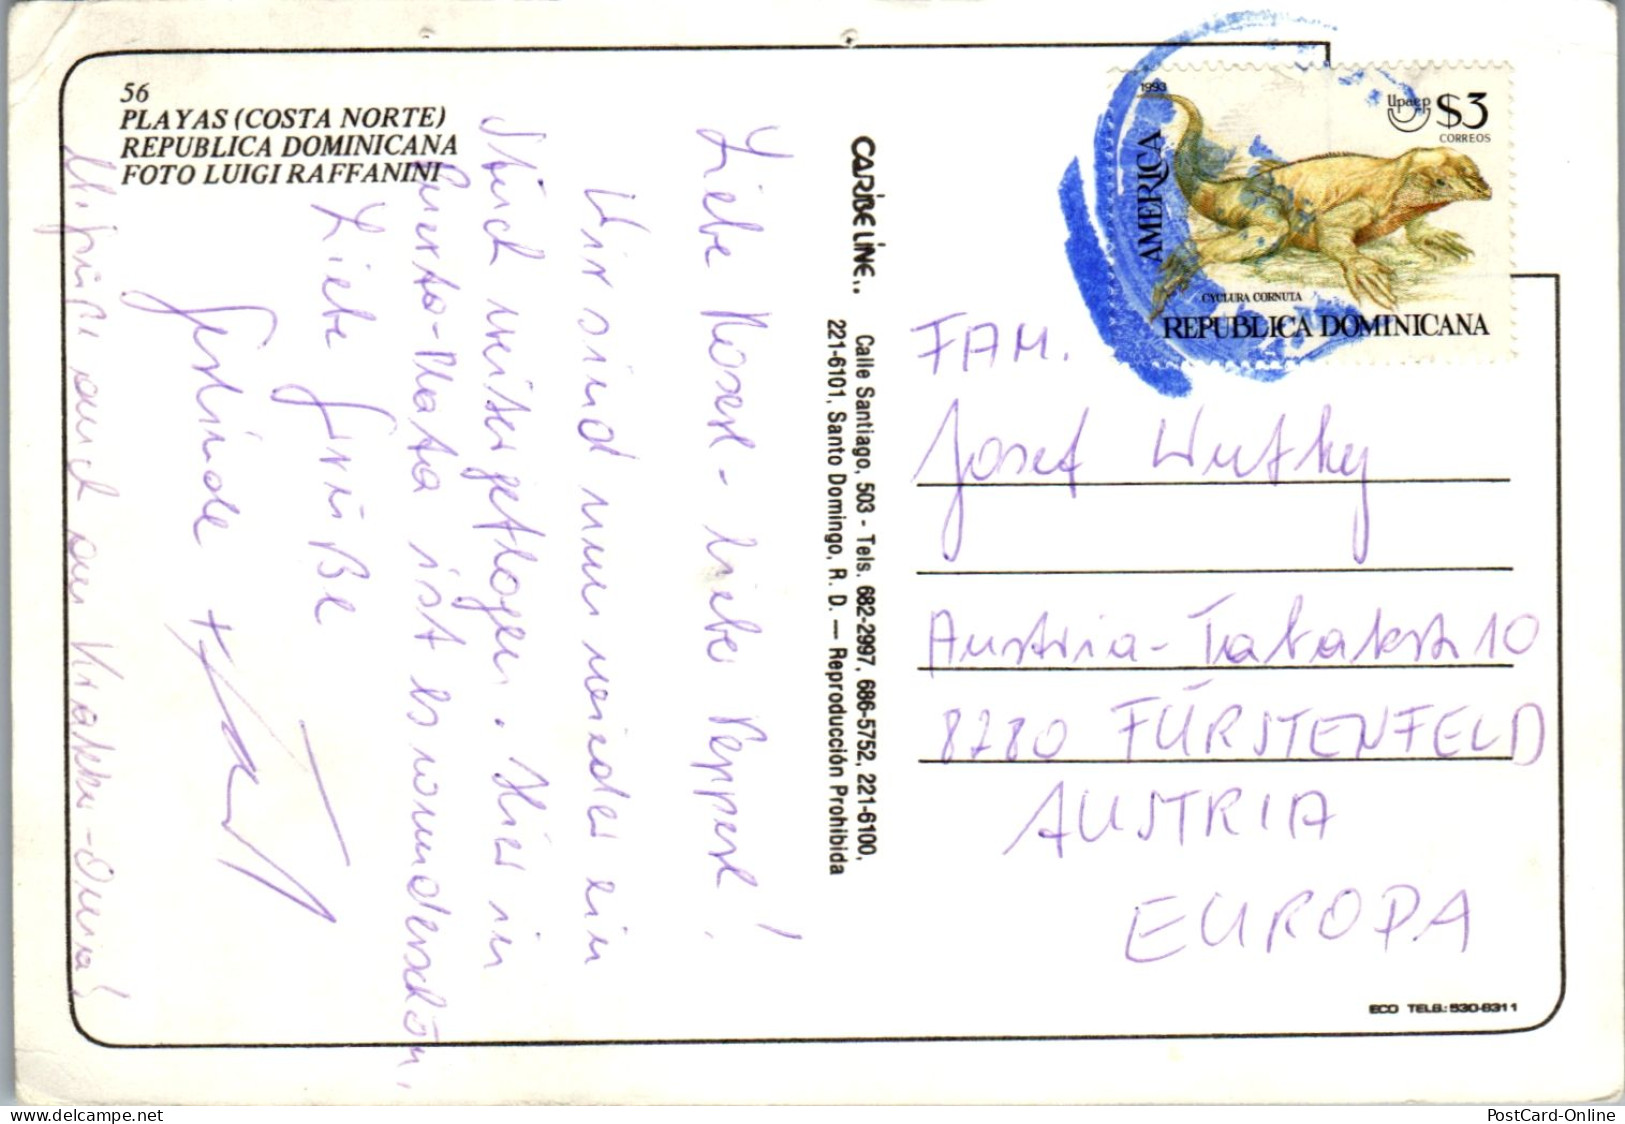 56
PLAYAS (COSTA NORTE)
REPUBLICA DOMINICANA
FOTO LUIGI RAFFANINI
Liebe Roserl - lieber Pepperl!
Wir sind nun wieder ein
Stück weitergeflogen. Hier in
Puerto-Plata ist es wunderschön.
Liebe Grüße
Gerlinde +
auch an
CARIBE LINE..
Calle Santiago, 503 - Tels. 682-2997, 686-5752, 221-6100,
221-6101, Santo Domingo, R. D. — Reproducción Prohibida
1993
AMERICA
Upaep $3
CORREOS
CYCLURA CORNUTA
REPUBLICA DOMINICANA
FAM.
Josef
Austria- 10
8280 FÜRSTENFELD
AUSTRIA
EUROPA
ECO TELS.: 530-6311
PostCard-Online
delcampe.net